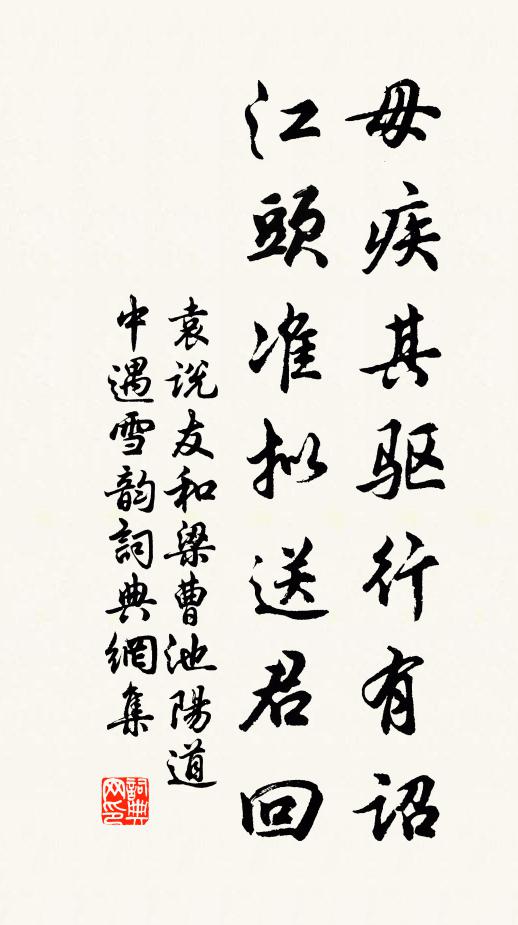 毋疾其驱行有詔
江頭准拟送君回
袁说友和梁曹池陽道
中遇雪韵詞典網集
詞典网印